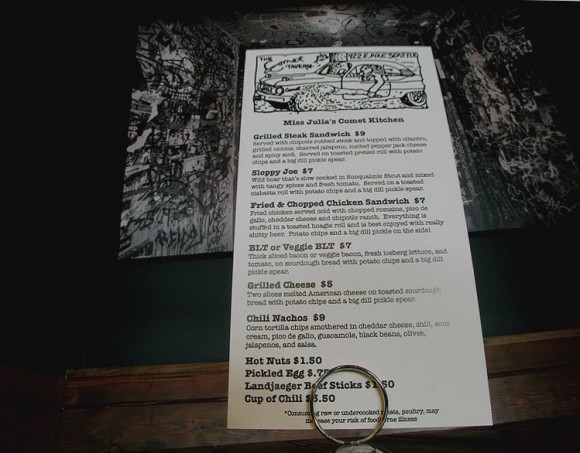 THE Comet TAVERN 922 E. PIKE SEATTLE
Miss Julia's Comet Kitchen
Grilled Steak Sandwich $9
Served with chipotle rubbed steak and topped with cilantro,
grilled onions, charred jalapeno, melted pepper jack cheese
and spicy aioli. Served on toasted pretzel roll with potato
chips and a big dill pickle spear.
Sloppy Joe $7
Wild boar that's slow cooked in Snoqualmie Stout and mixed
with tangy spices and fresh tomato. Served on a toasted
ciabatta roll with potato chips and a big dill pickle spear.
Fried & Chopped Chicken Sandwich $7
Fried chicken served cold with chopped romaine, pico de
gallo, cheddar cheese and chipotle ranch. Everything is
stuffed in a toasted hoagie roll and is best enjoyed with really
shitty beer. Potato chips and a big dill pickle on the side!
BLT or Veggie BLT $7
Thick sliced bacon or veggie bacon, fresh iceberg lettuce, and
tomato, on sourdough bread with potato chips and a big dill
pickle spear.
Grilled Cheese $5
Two slices melted American cheese on toasted sourdough
bread with potato chips and a big dill pickle spear.
Chili Nachos $9
Corn tortilla chips smothered in cheddar cheese, chili, sour
cream, pico de gallo, guacamole, black beans, olives,
jalapenos, and salsa.
Hot Nuts $1.50
Pickled Egg $.75
Landjaeger Beef Sticks $1.50
Cup of Chili $3.50
*Consuming raw or undercooked meats, poultry, may
increase your risk of foodborne illness